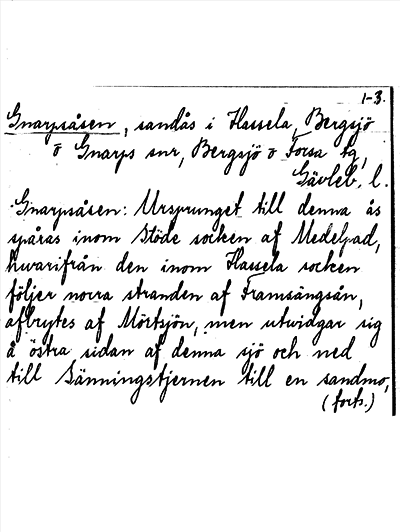 1-3.
Gnarpsåsen, sandås i Hassela, Bergsjö
o Gnarps snr, Bergsjö o Forsa tg,
Gävleb. l.
Gnarpsåsen: Ursprunget till denna ås
spåras inom Stöde socken af Medelpad,
hvarifrån den inom Hassela socken
följer norra stranden af Framsängsån,
afbrytes af Mörtsjön, men utvidgar sig
å östra sidan af denna sjö och ned
till Sänningstjernen till en sandmo,
(forts.)